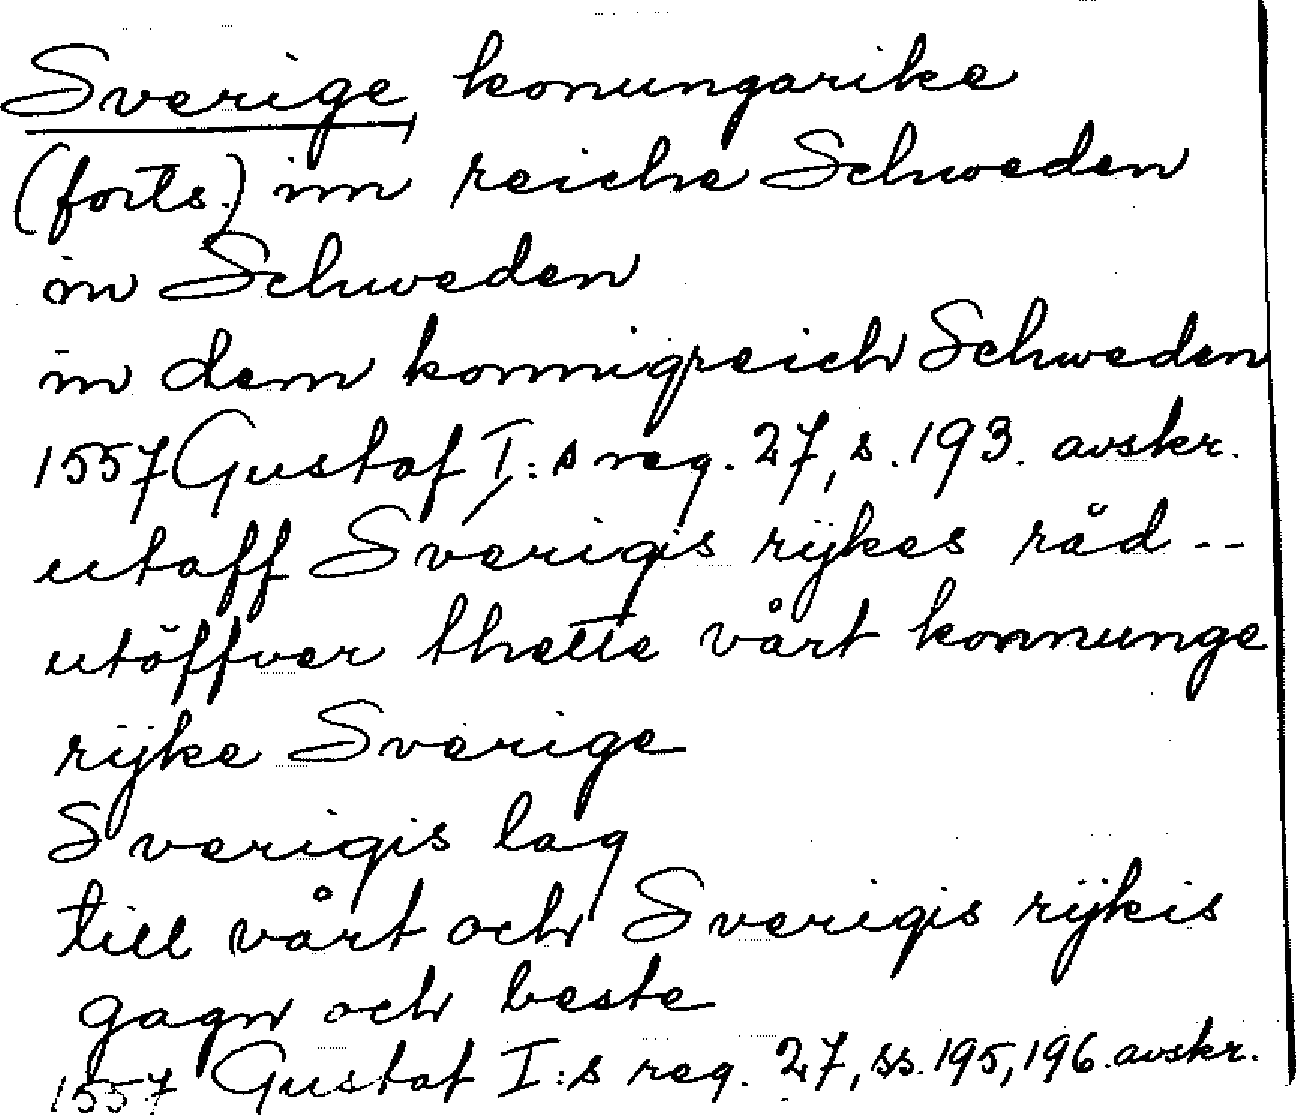 Sverige, konungarike
(forts.) im reiche Schweden
in Schweden
in dem konnigreich Schweden
1557 Gustaf I:s reg. 27, s. 193. avskr.
utaff Sverigis rijkes råd --
utöffver thette vårt konnunge
rijke Sverige
Sverigis lag
till vårt och Sverigis rijkis
gagn och beste
1557 Gustaf I:s reg. 27, ss. 195, 196. avskr.